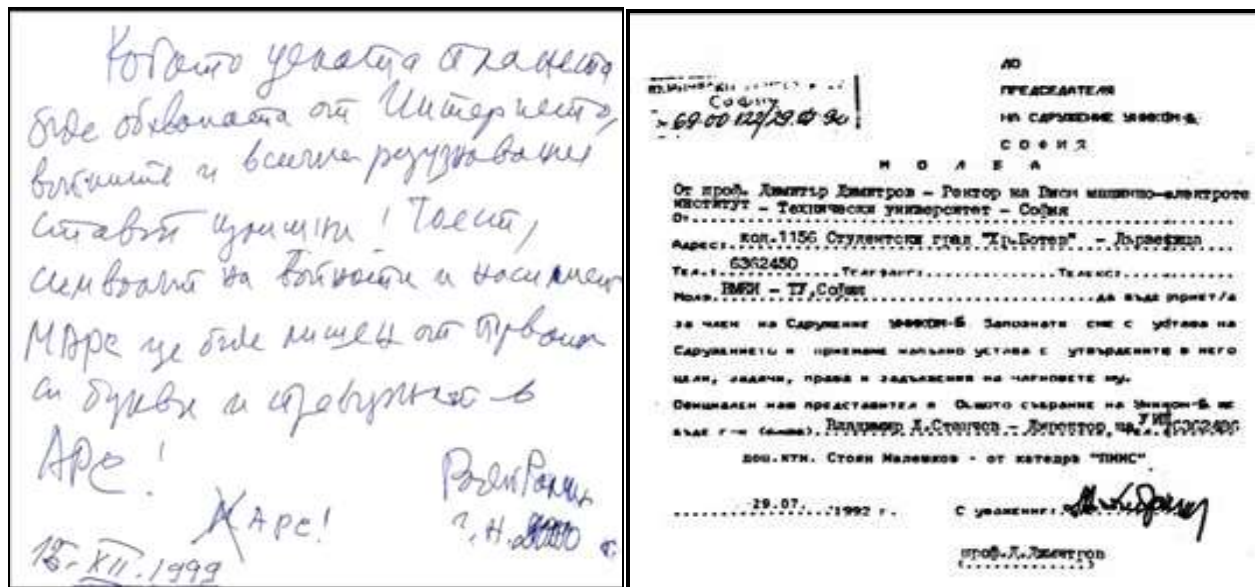 Когато цялата планета
бъде обхваната от Интернета,
войните и всички разузнавания
стават излишни! Тоест,
символът на войната и насилието
МАРС ще бъде лишен от първата
си буква и превърнат в
АРС!
АРС!
15.XII.1999
София
69.00
ДО
ПРЕДСЕДАТЕЛЯ
НА СДРУЖЕНИЕ УНИКОМ-Б
СОФИЯ
М О Л Б А
От проф. Димитър Димитров – Ректор на Висш машинно-електроте
институт – Технически университет – София
От
Адрес: кол.1156 Студентски град "Хр.Ботев" – Дървеница
Тел.: 6362450 Телефакс: Телекс:
Моля ВМЕИ – ТУ, София да бъде приет/а
за член на Сдружение УНИКОМ-Б. Запознати сме с устава на
Сдружението и приемаме напълно устава с утвърдените в него
цели, задачи, права и задължения на членовете му.
Официален наш представител в Общото събрание на Уником-Б ще
бъде г-н (г-жа) Владимир Д.Станчев – Директор на тел.
доц.ктн. Стоян Малешков - от катедра "ПИИС"
29.07. 1992 г. С уважение:
проф.Д.Димитров